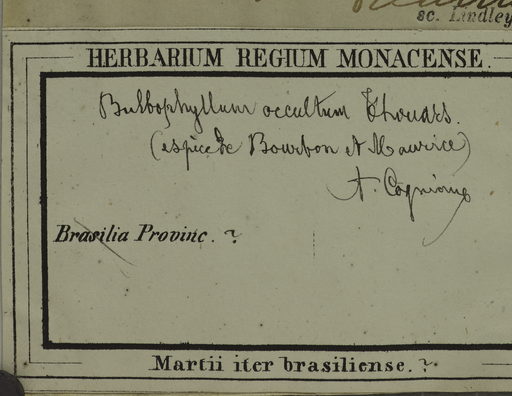 sc. Lindley
HERBARIUM REGIUM MONACENSE.
Bulbophyllum occultum Thouars.
(espèce de Bourbon et Maurice)
A. Cogniaux
Brasilia Provinc. ?
Martii iter brasiliense. ?